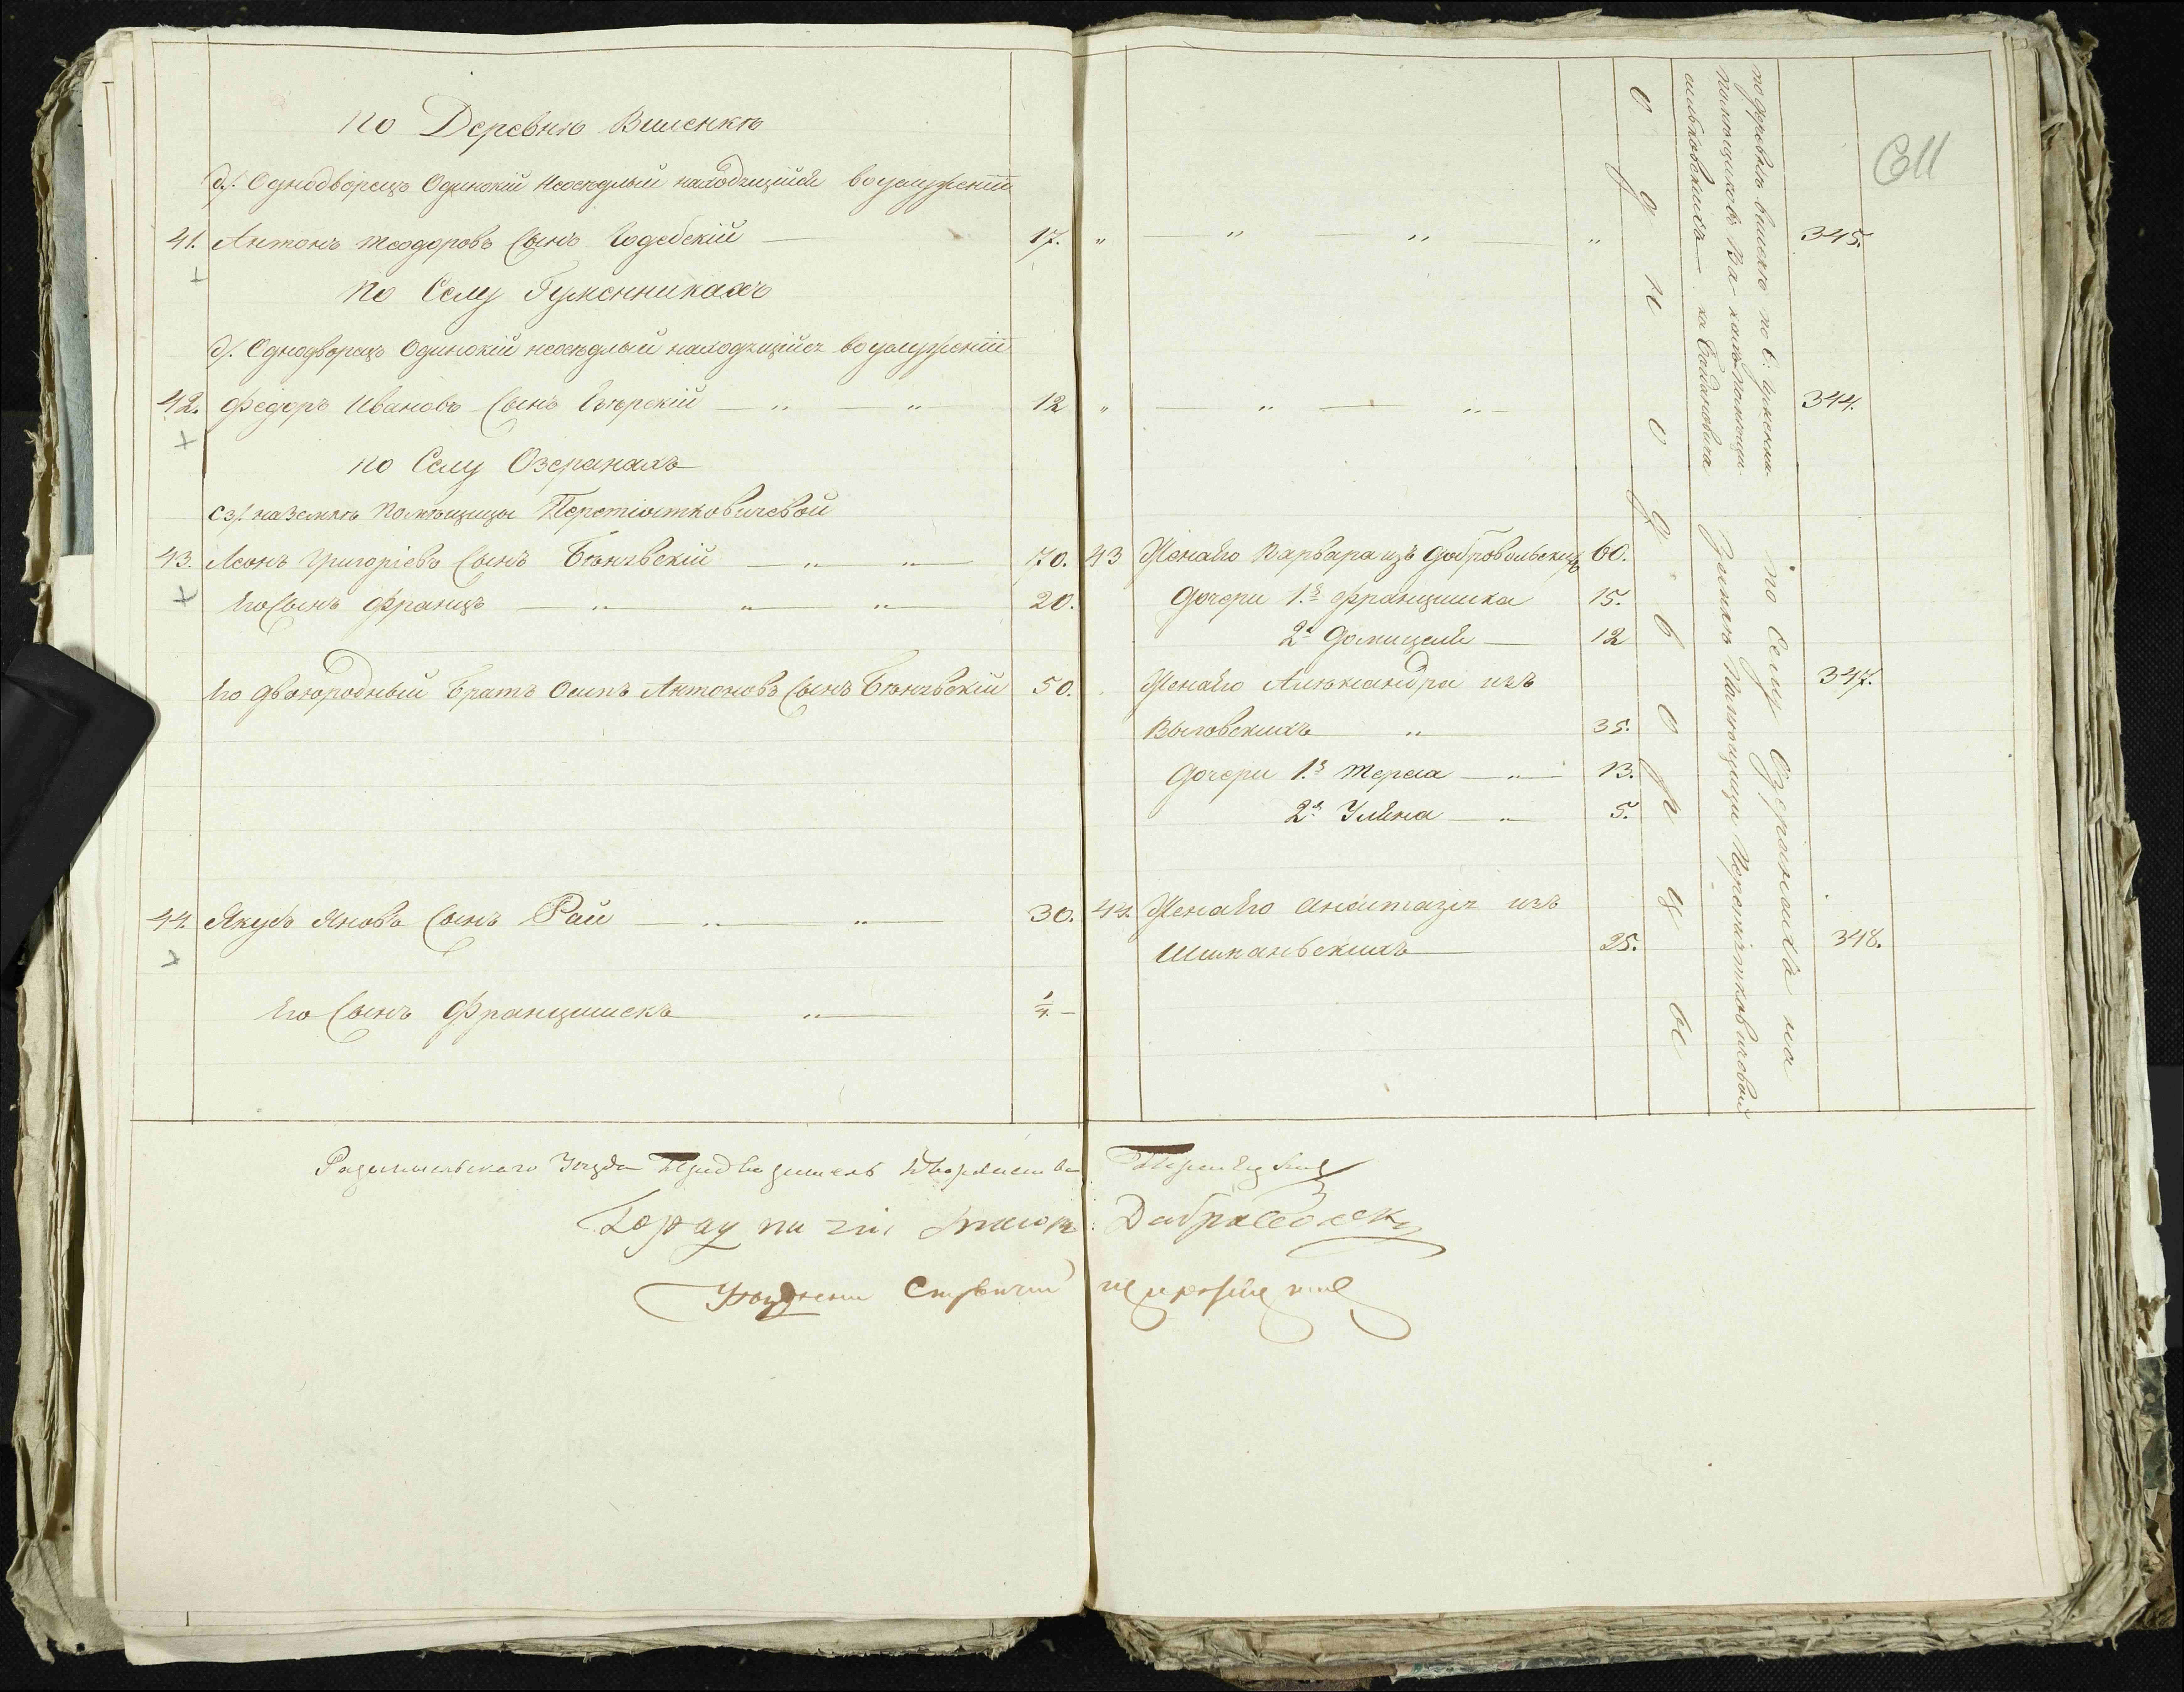 по Деревню Виленкѣ
д/. Однодворецъ Одинокій Неосѣдлый находящійся воуслуженіи
41. Антонъ Теодоровъ Сынъ Годебскій 17. „ „ „ „ 345.
по Селу Гуменникахъ
д/. Однодворецъ Одинокій неосѣдлый находящійся воуслуженіи
42. Федоръ Ивановъ Сынъ Гѣорскій „ „ 12 „ „ „ 344.
по Селу Озеранахъ
сз/. наЗемлѣ Помѣщицы Перетіятковичевой
43. Леонъ Григоріевъ Сынъ Бѣнѣвскій „ „ 70. 43 Женаѣго Варвара изъ Добровольскихъ 60.
ѣгоСынъ Францъ „ „ „ 20. Дочери 1.я Францишка 15.
2я Домицеля 12
ѣго Двоюродный Братъ Осипъ Антоновъ Сынъ Бѣнѣвскій 50. Женаѣго Алѣксандра изъ 347.
Выговскихъ „ 35.
Дочери 1.я Тереса „ 13.
2.я Уляна „ 5.
44. Якубъ Яновъ Сынъ Рай „ „ 30. 44. Женаѣго Анастазія изъ
Шиманьскихъ 25. 348.
ѣго Сынъ Францишекъ „ 1/4
однодворцы
по деревнѣ вилекѣ по с: гуменни-
помѣщиковъ
ка Богдановича
по Селу Озеранахъ на
Землѣ Помѣщици Перетіятковичевой
611
Радомысльскаго Уѣзда Предводитель Дворянства
Добровольски